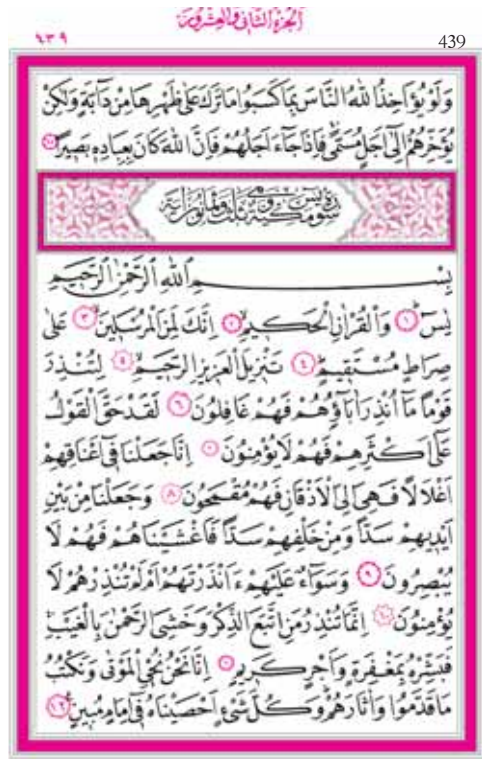 الجزء الثاني والعشرون
٤٣٩
439
وَلَوْ يُؤَاخِذُ اللّٰهُ النَّاسَ بِمَا كَسَبُوا مَا تَرَكَ عَلٰى ظَهْرِهَا مِنْ دَابَّةٍ وَلٰكِنْ
يُؤَخِّرُهُمْ اِلٰٓى اَجَلٍ مُسَمًّىۚ فَاِذَا جَٓاءَ اَجَلُهُمْ فَاِنَّ اللّٰهَ كَانَ بِعِبَادِه۪ بَص۪يرًا ﴿٤٥﴾
سورة يس مكية وهي ثلث وثمانون اية
بِسْمِ اللّٰهِ الرَّحْمٰنِ الرَّح۪يمِ
يٰسٓۜ ﴿١﴾ وَالْقُرْاٰنِ الْحَك۪يمِۙ ﴿٢﴾ اِنَّكَ لَمِنَ الْمُرْسَل۪ينَۙ ﴿٣﴾ عَلٰى
صِرَاطٍ مُسْتَق۪يمٍۜ ﴿٤﴾ تَنْز۪يلَ الْعَز۪يزِ الرَّح۪يمِۙ ﴿٥﴾ لِتُنْذِرَ
قَوْمًا مَٓا اُنْذِرَ اٰبَٓاؤُ۬هُمْ فَهُمْ غَافِلُونَ ﴿٦﴾ لَقَدْ حَقَّ الْقَوْلُ
عَلٰٓى اَكْثَرِهِمْ فَهُمْ لَا يُؤْمِنُونَ ﴿٧﴾ اِنَّا جَعَلْنَا ف۪ٓي اَعْنَاقِهِمْ
اَغْلَالًا فَهِيَ اِلَى الْاَذْقَانِ فَهُمْ مُقْمَحُونَ ﴿٨﴾ وَجَعَلْنَا مِنْ بَيْنِ
اَيْد۪يهِمْ سَدًّا وَمِنْ خَلْفِهِمْ سَدًّا فَاَغْشَيْنَاهُمْ فَهُمْ لَا
يُبْصِرُونَ ﴿٩﴾ وَسَوَٓاءٌ عَلَيْهِمْ ءَاَنْذَرْتَهُمْ اَمْ لَمْ تُنْذِرْهُمْ لَا
يُؤْمِنُونَ ﴿١٠﴾ اِنَّمَا تُنْذِرُ مَنِ اتَّبَعَ الذِّكْرَ وَخَشِيَ الرَّحْمٰنَ بِالْغَيْبِۚ
فَبَشِّرْهُ بِمَغْفِرَةٍ وَاَجْرٍ كَر۪يمٍ ﴿١١﴾ اِنَّا نَحْنُ نُحْيِ الْمَوْتٰى وَنَكْتُبُ
مَا قَدَّمُوا وَاٰثَارَهُمْۜ وَكُلَّ شَيْءٍ اَحْصَيْنَاهُ ف۪ٓي اِمَامٍ مُب۪ينٍ ﴿١٢﴾